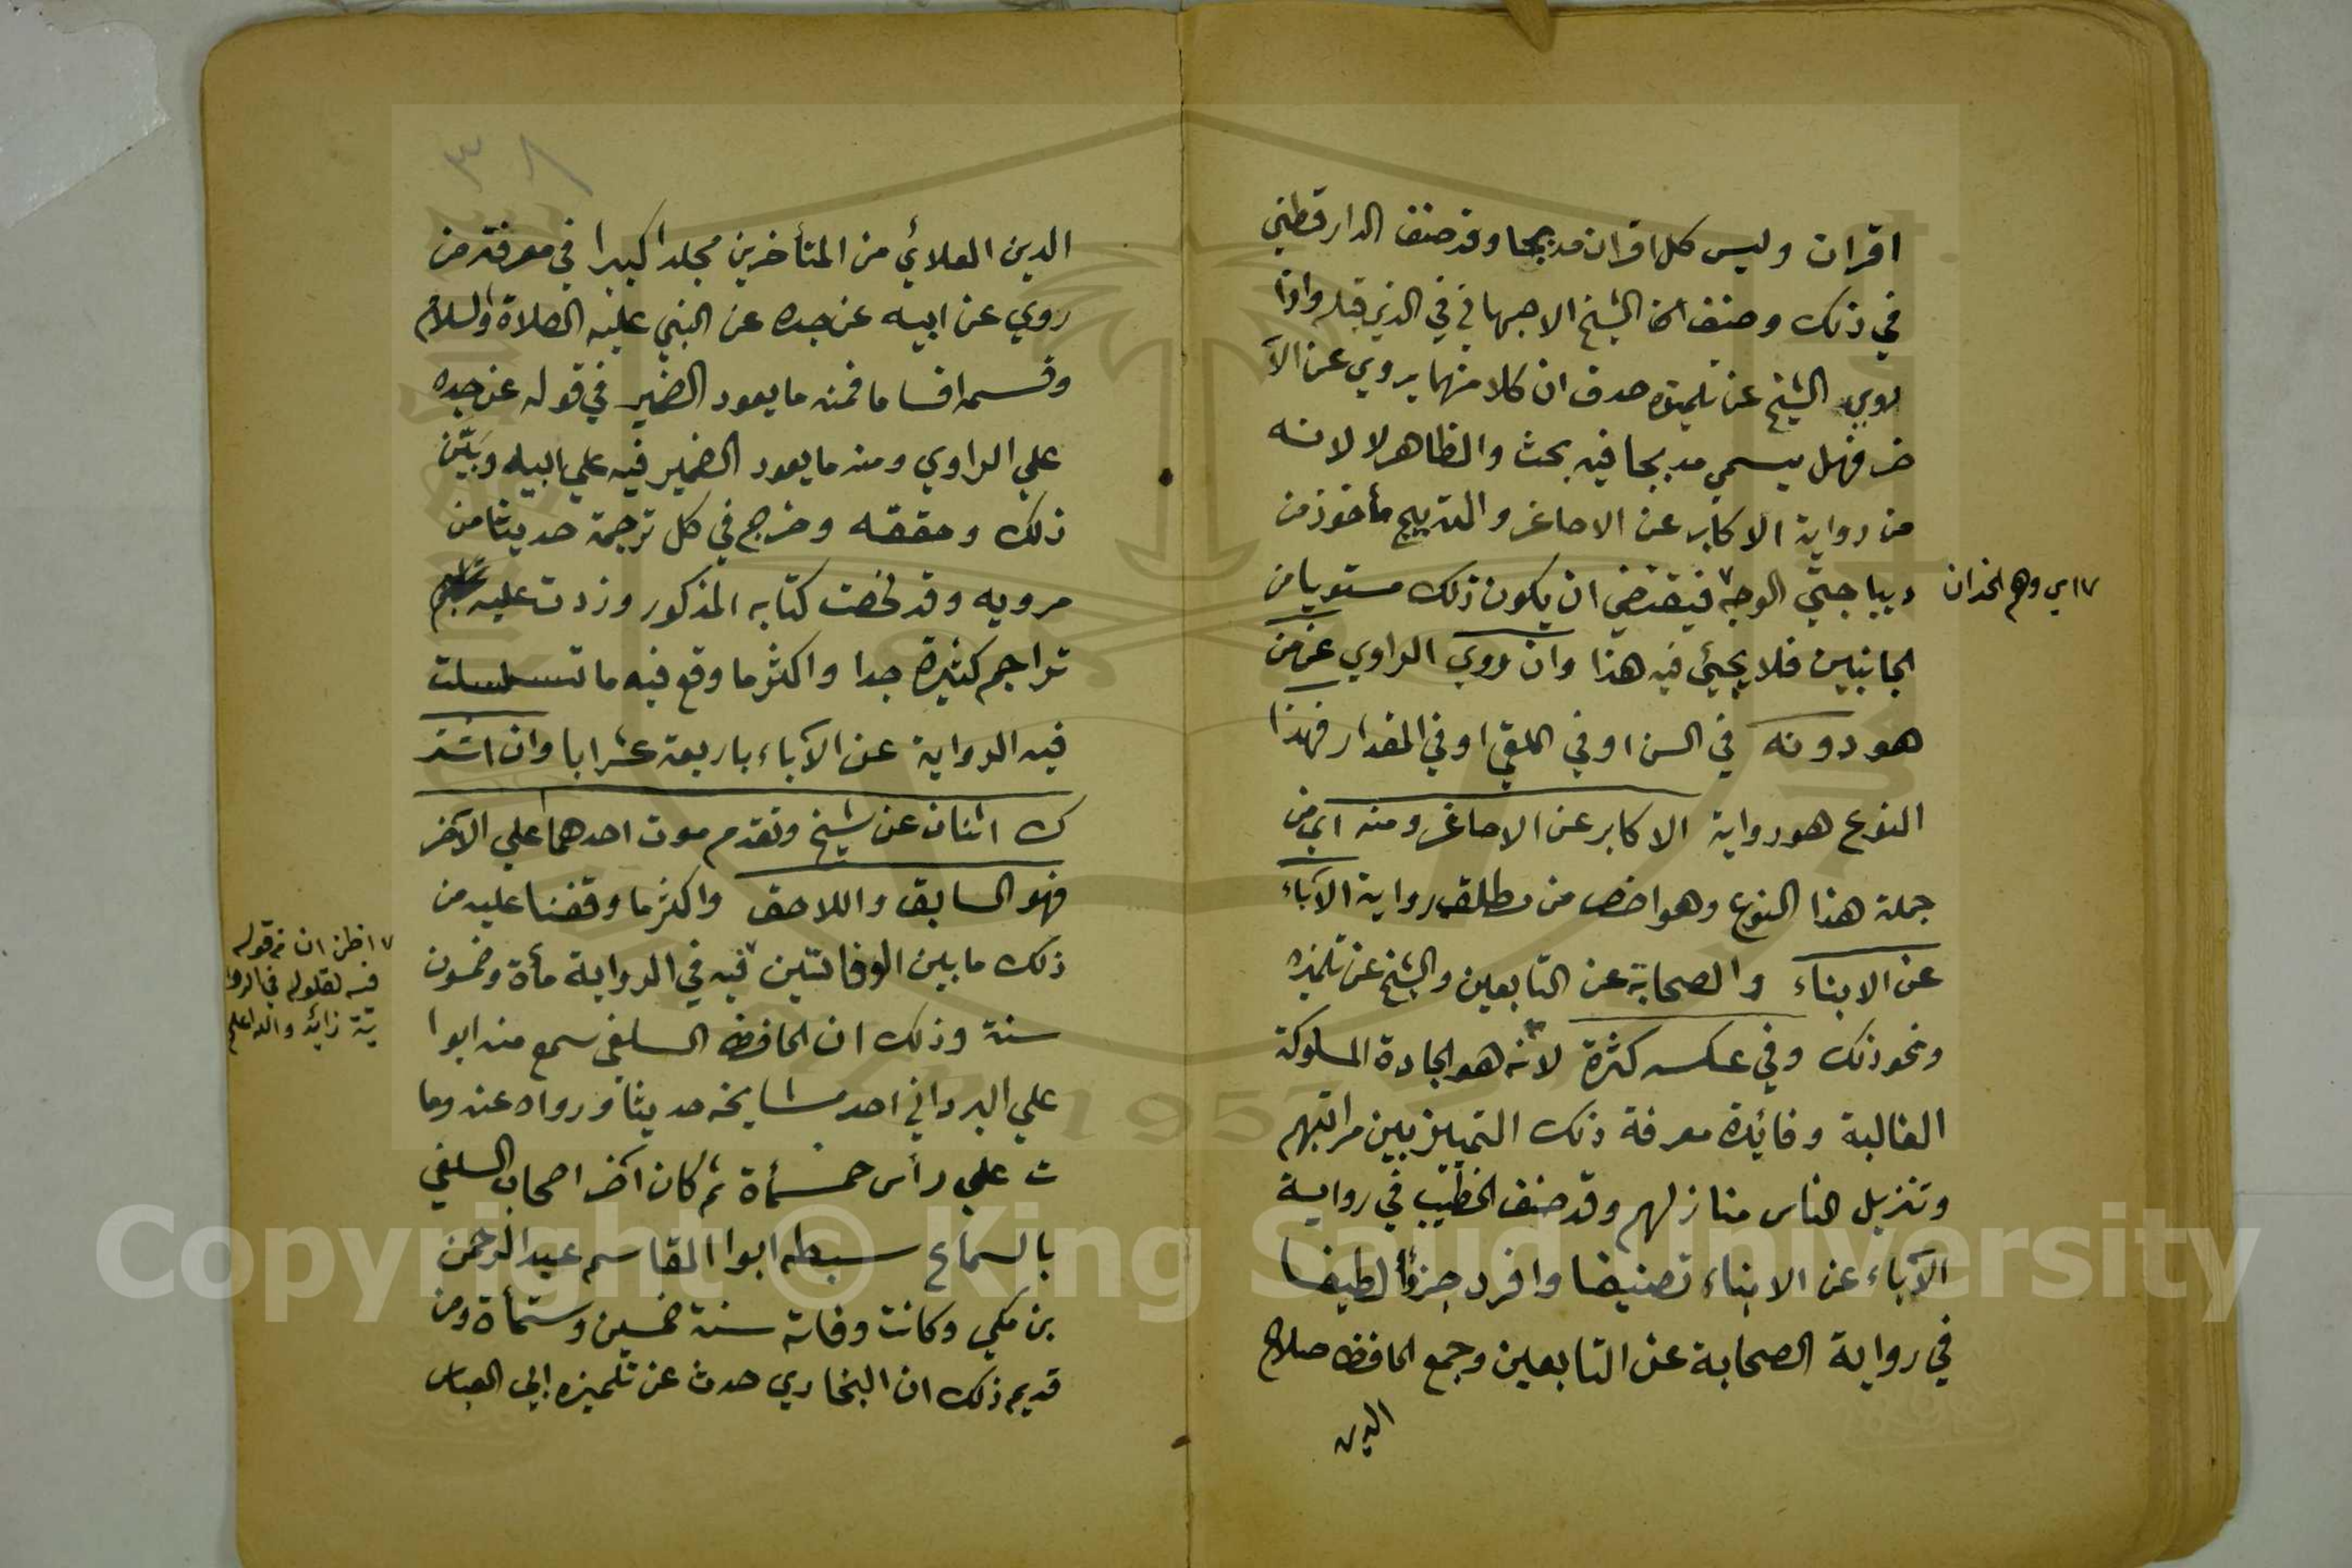 اقران وليس كل اقران مدبجا وقد صنف الدارقطني
في ذلك وصنف الشيخ الاصبهاني في الذي قبله واذا
روي الشيخ عن تلميذه صدق ان كلا منهما يروي عن الآ
خر فهل يسمي مدبجا فيه بحث والظاهر لا لانه
من رواية الاكابر عن الاصاغر والتدبيج مأخوذ من
ديباجتي الوجه٧ فيقتضي ان يكون ذلك مستويا من
الجانبين فلا يجيئ فيه هذا وان روي الراوي عن من
هو دونه في السن او في اللقي او في المقدار فهذا
النوع هو رواية الاكابر عن الاصاغر ومنه اي من
جملة هذا النوع وهو اخص من مطلقه رواية الآباء
عن الابناء والصحابة عن التابعين والشيخ عن تلميذه
ونحو ذلك وفي عكسه كثرة لانه هو الجادة المسلوكة
الغالبة وفائدة معرفة ذلك التمييز بين مراتبهم
وتنزيل الناس منازلهم وقد صنف الخطيب في رواية
الآباء عن الابناء تصنيفا وافرد جزؤأ لطيفا
في رواية الصحابة عن التابعين وجمع الحافظ صلاح
الدين
٧ اي وهم الخدان
٣٨
الدين العلائي من المتأخرين مجلدا كبيرا في معرفة من
روي عن ابيه عن جده عن النبي عليه الصلاة والسلام
وقسمه اقساما فمنه ما يعود الضمير في قوله عن جده
علي الراوي ومنه ما يعود الضمير فيه علي ابيه وبَيَّن
ذلك وحققه وخرج في كل ترجمة حديثا من
مرويه وقد لخصت كتابه المذكور وزدت عليه
تراجم كثيرة جدا واكثر ما وقع فيه ما تسلسلت
فيه الرواية عن الآباء باربعة عشر ابا وان اشتر
ك اثنان عن شيخ وتقدم موت احدهما علي الآخر
فهو السابق واللاحق واكثر ما وقفنا عليه من
ذلك ما بين الوفاتين ٧فيه في الرواية مأة وخمسون
سنة وذلك ان الحافظ السلفي سمع منه ابوا
علي البرداني احد مشايخه حديثا ورواه عنه وما
ت علي رأس خمسمأة ثم كان آخر اصحاب السلفي
بالسماع سبطه ابوا القاسم عبد الرحمن
بن مكي وكانت وفاته سنة خمسين وستمأة ومن
قديم ذلك ان البخاري حدث عن تلميذه ابي العباس
٧ اظن ان قوله
فيه لقوله في الروا
ية زائد والله اعلم
Copyright © King Saud University
1957